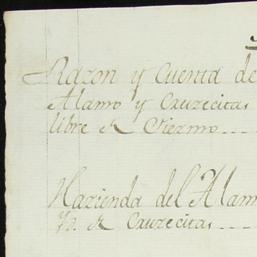 Razon y Cuenta de
Alamo y Cruzecitas
libre de Diezmo
Hazienda del Alam
Yd. de Cruzecitas